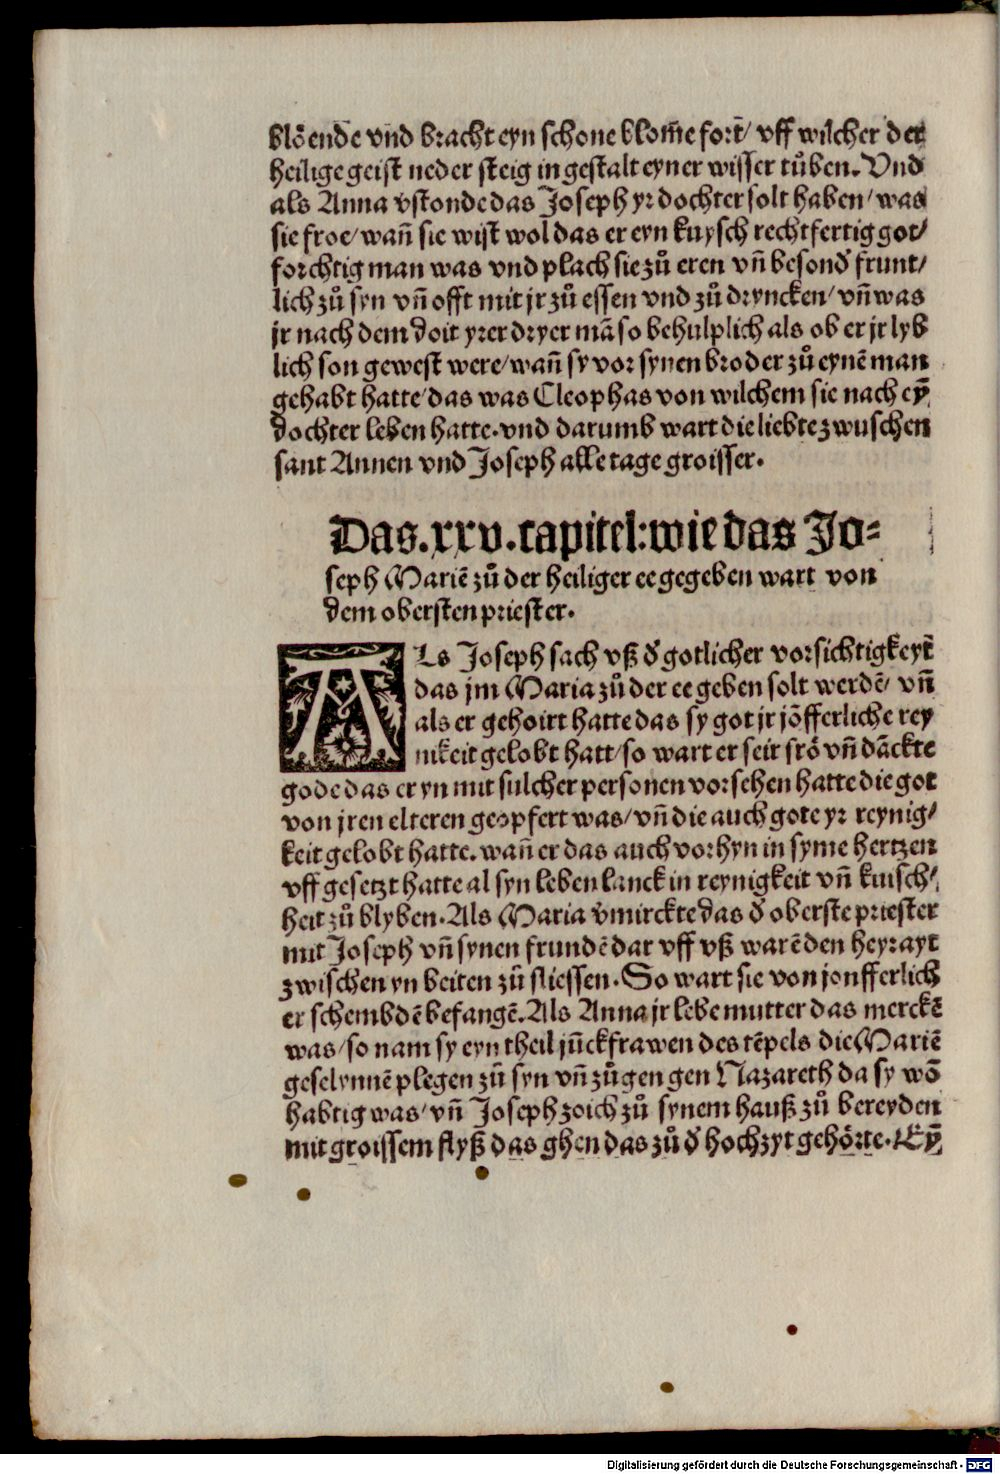 blöende vnd bracht eyn schone blom̄e fort̄/ vff wilcher der
heilige geist neder steig in gestalt eyner wisser tůben. Vnd
als Anna vstonde das Joseph yr dochter solt haben/ was
sie froe/ wan̄ sie wist wol das er eyn kuysch rechtfertig got/
forchtig man was vnd plach sie zů eren vn̄ besond̕ frunt/
lich zů syn vn̄ offt mit jr zů essen vnd zů dryncken/ vn̄ was
jr nach dem doit yrer dryer mā so behulplich als ob er jr lyb
lich son gewest were/ wan̄ sy vor synen broder zů eynē man
gehabt hatte/ das was Cleophas von wilchem sie nach eȳ
dochter leben hatte. vnd darumb wart die liebte zwuschen
sant Annen vnd Joseph alle tage groisser.
Das .xxv. capitel: wie das Jo=
seph Mariē zů der heiliger ee gegeben wart von
dem obersten priester.
ALs Joseph sach vß d̕ gotlicher vorsichtigkeyt̄
das jm Maria zů der ee geben solt werdē/ vn̄
als er gehoirt hatte das sy got jr jōfferliche rey
nikeit gelobt hatt/ so wart er seir frō vn̄ dāckte
gode das er yn mit sulcher personen vorsehen hatte die got
von jren elteren geopfert was/ vn̄ die auch gote yr reynig/
keit gelobt hatte. wan̄ er das auch vorhyn in syme hertzen
vff gesetzt hatte al syn leben lanck in reynigkeit vn̄ kuisch/
heit zů blyben. Als Maria v̕mirckte das d̕ oberste priester
mit Joseph vn̄ synen frundē dar vff vß warē den heyrayt
zwischen yn beiten zů sliessen. So wart sie von jonfferlich
er schembdē befangē. Als Anna jr lebe mutter das merckē
was/ so nam sy eyn theil jūckfrawen des tēpels die Mariē
geselynnē plegen zů syn vn̄ zůgen gen Nazareth da sy wō
habtig was/ vn̄ Joseph zoich zů synem hauß zů bereyden
mit groissem flyß das ghen das zů d̕ hochzyt gehörte. Eȳ
Digitalisierung gefördert durch die Deutsche Forschungsgemeinschaft - DFG